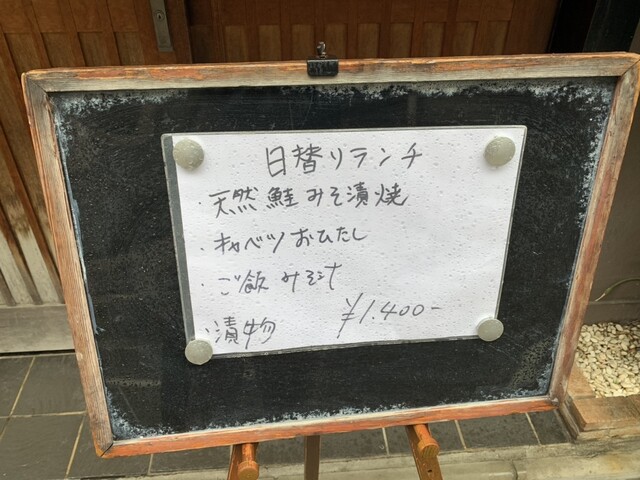 日替りランチ
・天然鮭みそ漬焼
・キャベツおひたし
・ご飯 みそ汁
・漬物 ¥1.400-